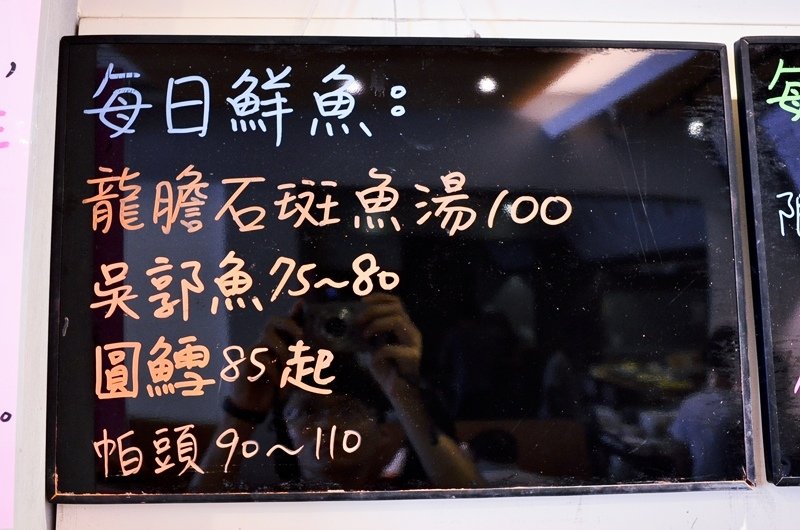 每日鮮魚：
龍膽石斑魚湯100
吳郭魚75~80
圓鱈85起
帕頭90~110
每